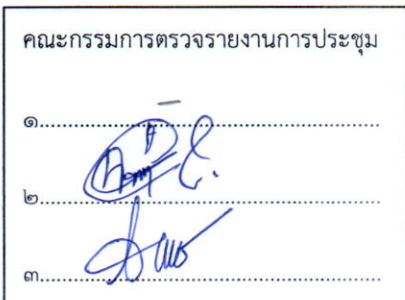 คณะกรรมการตรวจรายงานการประชุม
๑..........................................................
๒..........................................................
๓..........................................................